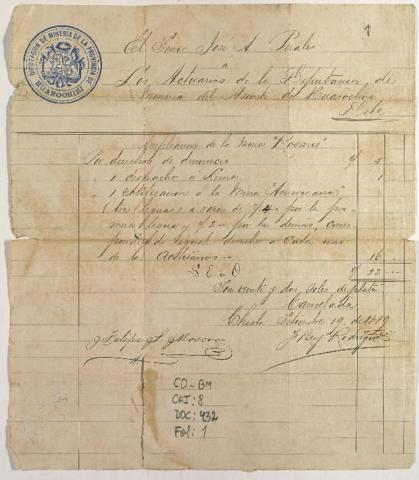 1
DIPUTACION DE MINERIA DE LA PROVINCIA DE HUAROCHIRI
El Señor José A. Perales
Los Actuarios de la Diputacion de
Mineria del Asiento de Huarochiri
Debe
Ampliacion de la Mina "Rosario"
Por derechos de denuncio S/ 5
" 1 despacho á Lima 1
" 1 notificacion á la Mina "Americana"
(tres leguas) á razon de S/4 por la pri-
mera legua y S/2 por las demas, corres-
pondiendo igual derecho a cada uno
de los Actuarios 16
S. E. u O. S/ 22
Son veinte y dos soles de plata
Cancelada
Setiembre 19 de 1889
Felipe S. Moscoso
J. Rodriguez
CD-BM
CAJ: 8
DOC: 432
Fol: 1